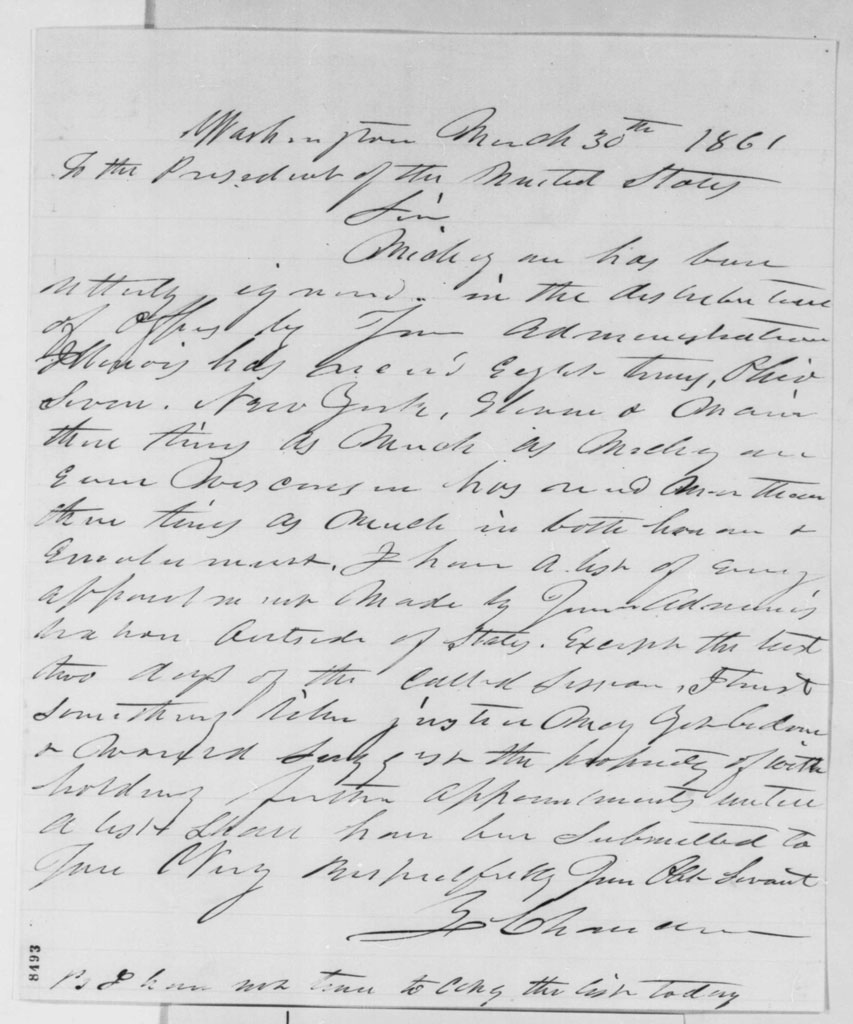 Washington March 30th 1861
To the President of the United States
Sir
Michigan has been
utterly ignored in the distribution
of Offices by Your Administration
Illinois has recd Eight times, Ohio
Seven. New York, & Main
three times as Much as Michigan
Even Wisconsin has recd More than
three times as Much in both honor &
Emolument. I have a list of every
appointment Made by Your Adminis
tration outside of States. Except the last
two days of the Called Session, I trust
something like justice May yet be done
& would Suggest the propriety of with
holding further appointments until
a list shall have been submitted to
You Very Respectfully Your Obt Servant
Z Chandler
Ps I have not time to Copy the list today
8493